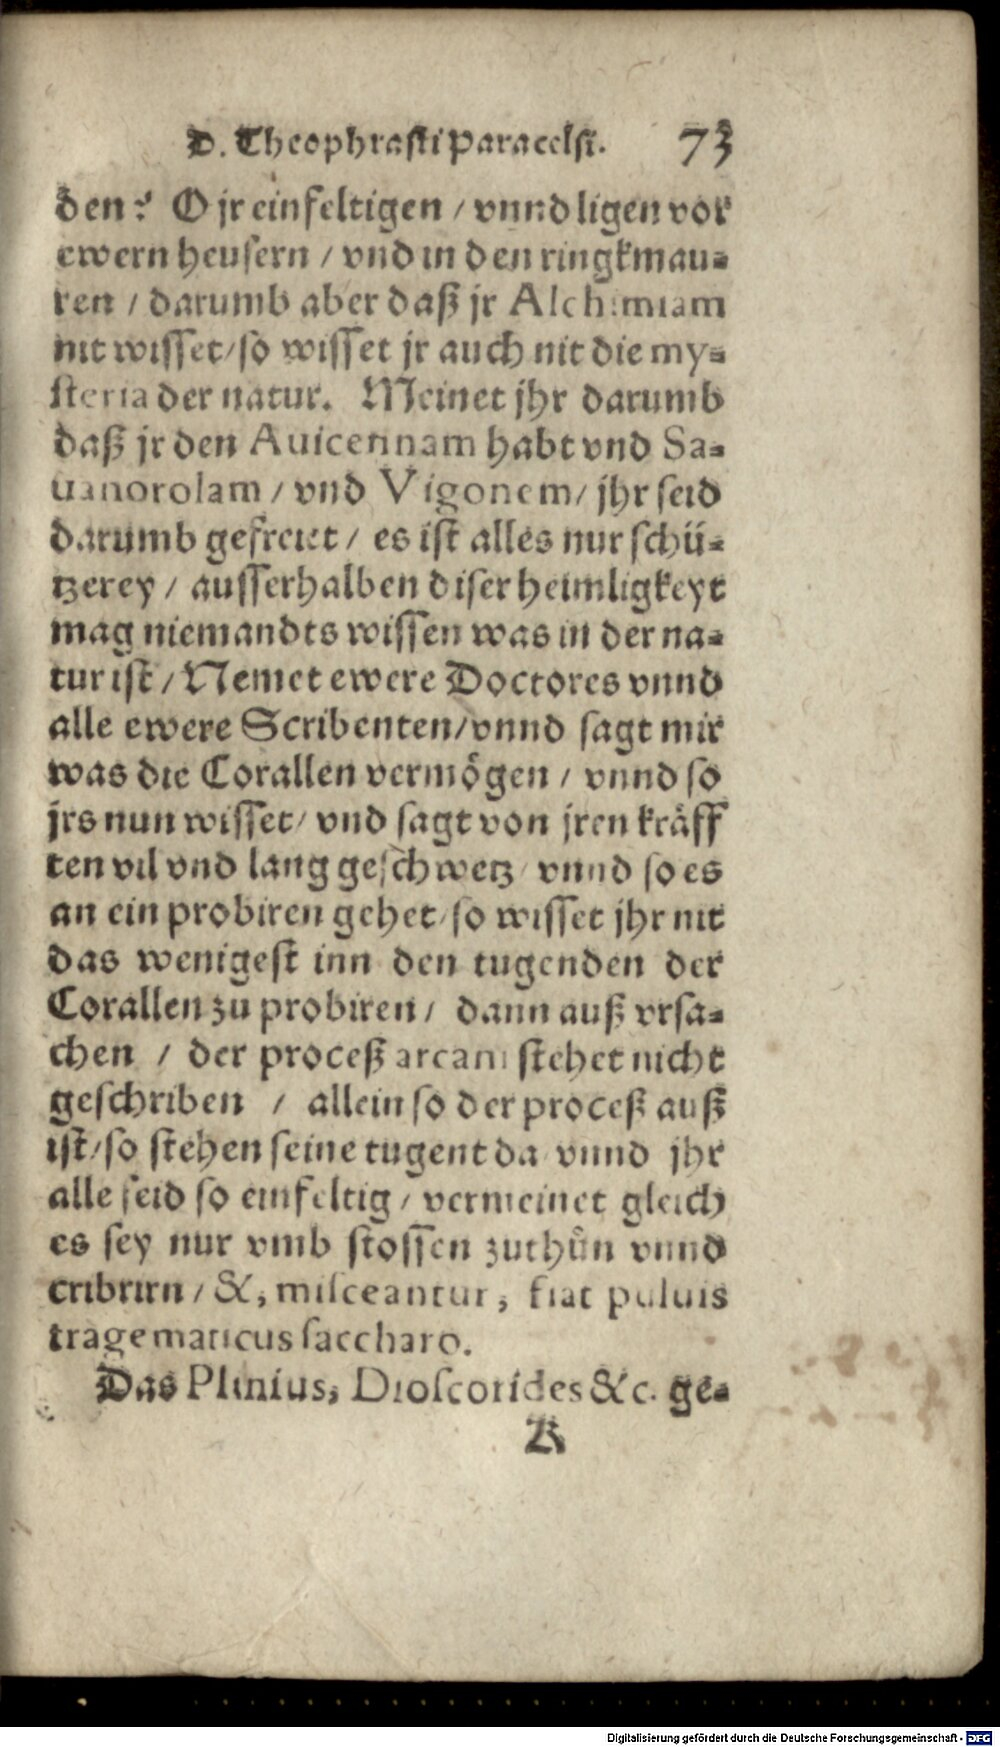 D. Theophrasti Paracelsi. 73
den? O jr einfeltigen / vnnd ligen vor
ewern heusern / vnd in den ringkmau-
ren / darumb aber daß jr Alchimiam
nit wisset / so wisset jr auch nit die my-
steria der natur. Meinet jhr darumb
daß jr den Auicennam habt vnd Sa-
uanorolam / vnd Vigonem / jhr seid
darumb gefreiet / es ist alles nur schü-
tzerey / ausserhalben diser heimligkeyt
mag niemandts wissen was in der na-
tur ist / Nemet ewere Doctores vnnd
alle ewere Scribenten / vnnd sagt mir
was die Corallen vermögen / vnnd so
jrs nun wisset / vnd sagt von jren kräff
ten vil vnd lang geschwetz / vnnd so es
an ein probiren gehet / so wisset jhr nit
das wenigest inn den tugenden der
Corallen zu probiren / dann auß vrsa-
chen / der proceß arcani stehet nicht
geschriben / allein so der proceß auß
ist / so stehen seine tugent da / vnnd jhr
alle seid so einfeltig / vermeinet gleich
es sey nur vmb stossen zuthůn vnnd
cribrirn / &, misceantur, fiat puluis
tragematicus saccharo.
Das Plinius, Dioscorides &c. ge-
K
Digitalisierung gefördert durch die Deutsche Forschungsgemeinschaft - DFG